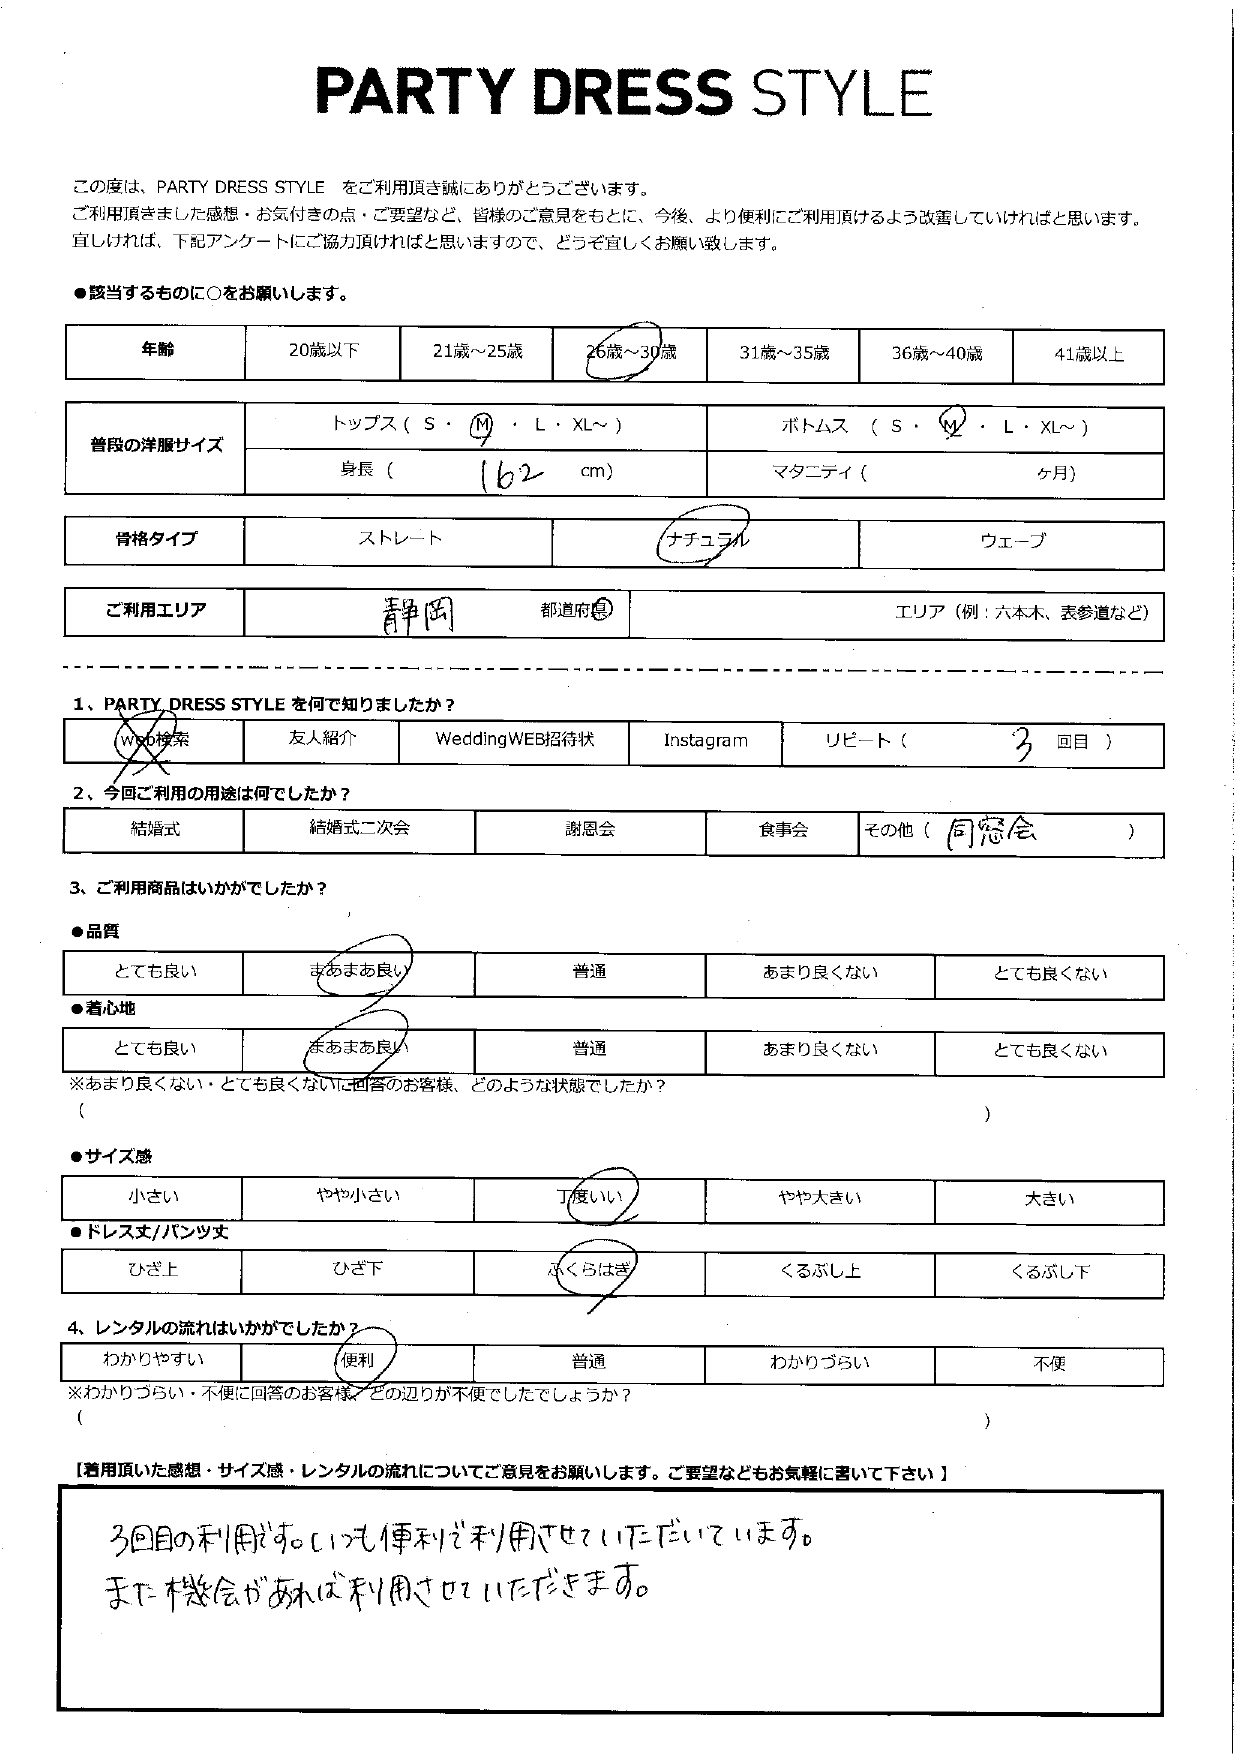 PARTY DRESS STYLE
この度は、PARTY DRESS STYLE をご利用頂き誠にありがとうございます。
ご利用頂きました感想・お気付きの点・ご要望など、皆様のご意見をもとに、今後、より便利にご利用頂けるよう改善していければと思います。
宜しければ、下記アンケートにご協力頂ければと思いますので、どうぞ宜しくお願い致します。
●該当するものに○をお願いします。
年齢 20歳以下 21歳～25歳 26歳～30歳 31歳～35歳 36歳～40歳 41歳以上
普段の洋服サイズ トップス ( S ・ M ・ L ・ XL～ ) ボトムス ( S ・ M ・ L ・ XL～ )
身長 ( 162 cm) マタニティ ( ヶ月)
骨格タイプ ストレート ナチュラル ウェーブ
ご利用エリア 静岡 都道府県 エリア（例：六本木、表参道など）
1、PARTY DRESS STYLE を何で知りましたか？
web検索 友人紹介 WeddingWEB招待状 Instagram リピート ( 3 回目 )
2、今回ご利用の用途は何でしたか？
結婚式 結婚式二次会 謝恩会 食事会 その他 ( 同窓会 )
3、ご利用商品はいかがでしたか？
●品質
とても良い まあまあ良い 普通 あまり良くない とても良くない
●着心地
とても良い まあまあ良い 普通 あまり良くない とても良くない
※あまり良くない・とても良くないに回答のお客様、どのような状態でしたか？
( )
●サイズ感
小さい やや小さい 丁度いい やや大きい 大きい
●ドレス丈/パンツ丈
ひざ上 ひざ下 ふくらはぎ くるぶし上 くるぶし下
4、レンタルの流れはいかがでしたか？
わかりやすい 便利 普通 わかりづらい 不便
※わかりづらい・不便に回答のお客様、どの辺りが不便でしたでしょうか？
( )
【着用頂いた感想・サイズ感・レンタルの流れについてご意見をお願いします。ご要望などもお気軽に書いて下さい 】
3回目の利用です。いつも便利で利用させていただいています。
また機会があれば利用させていただきます。